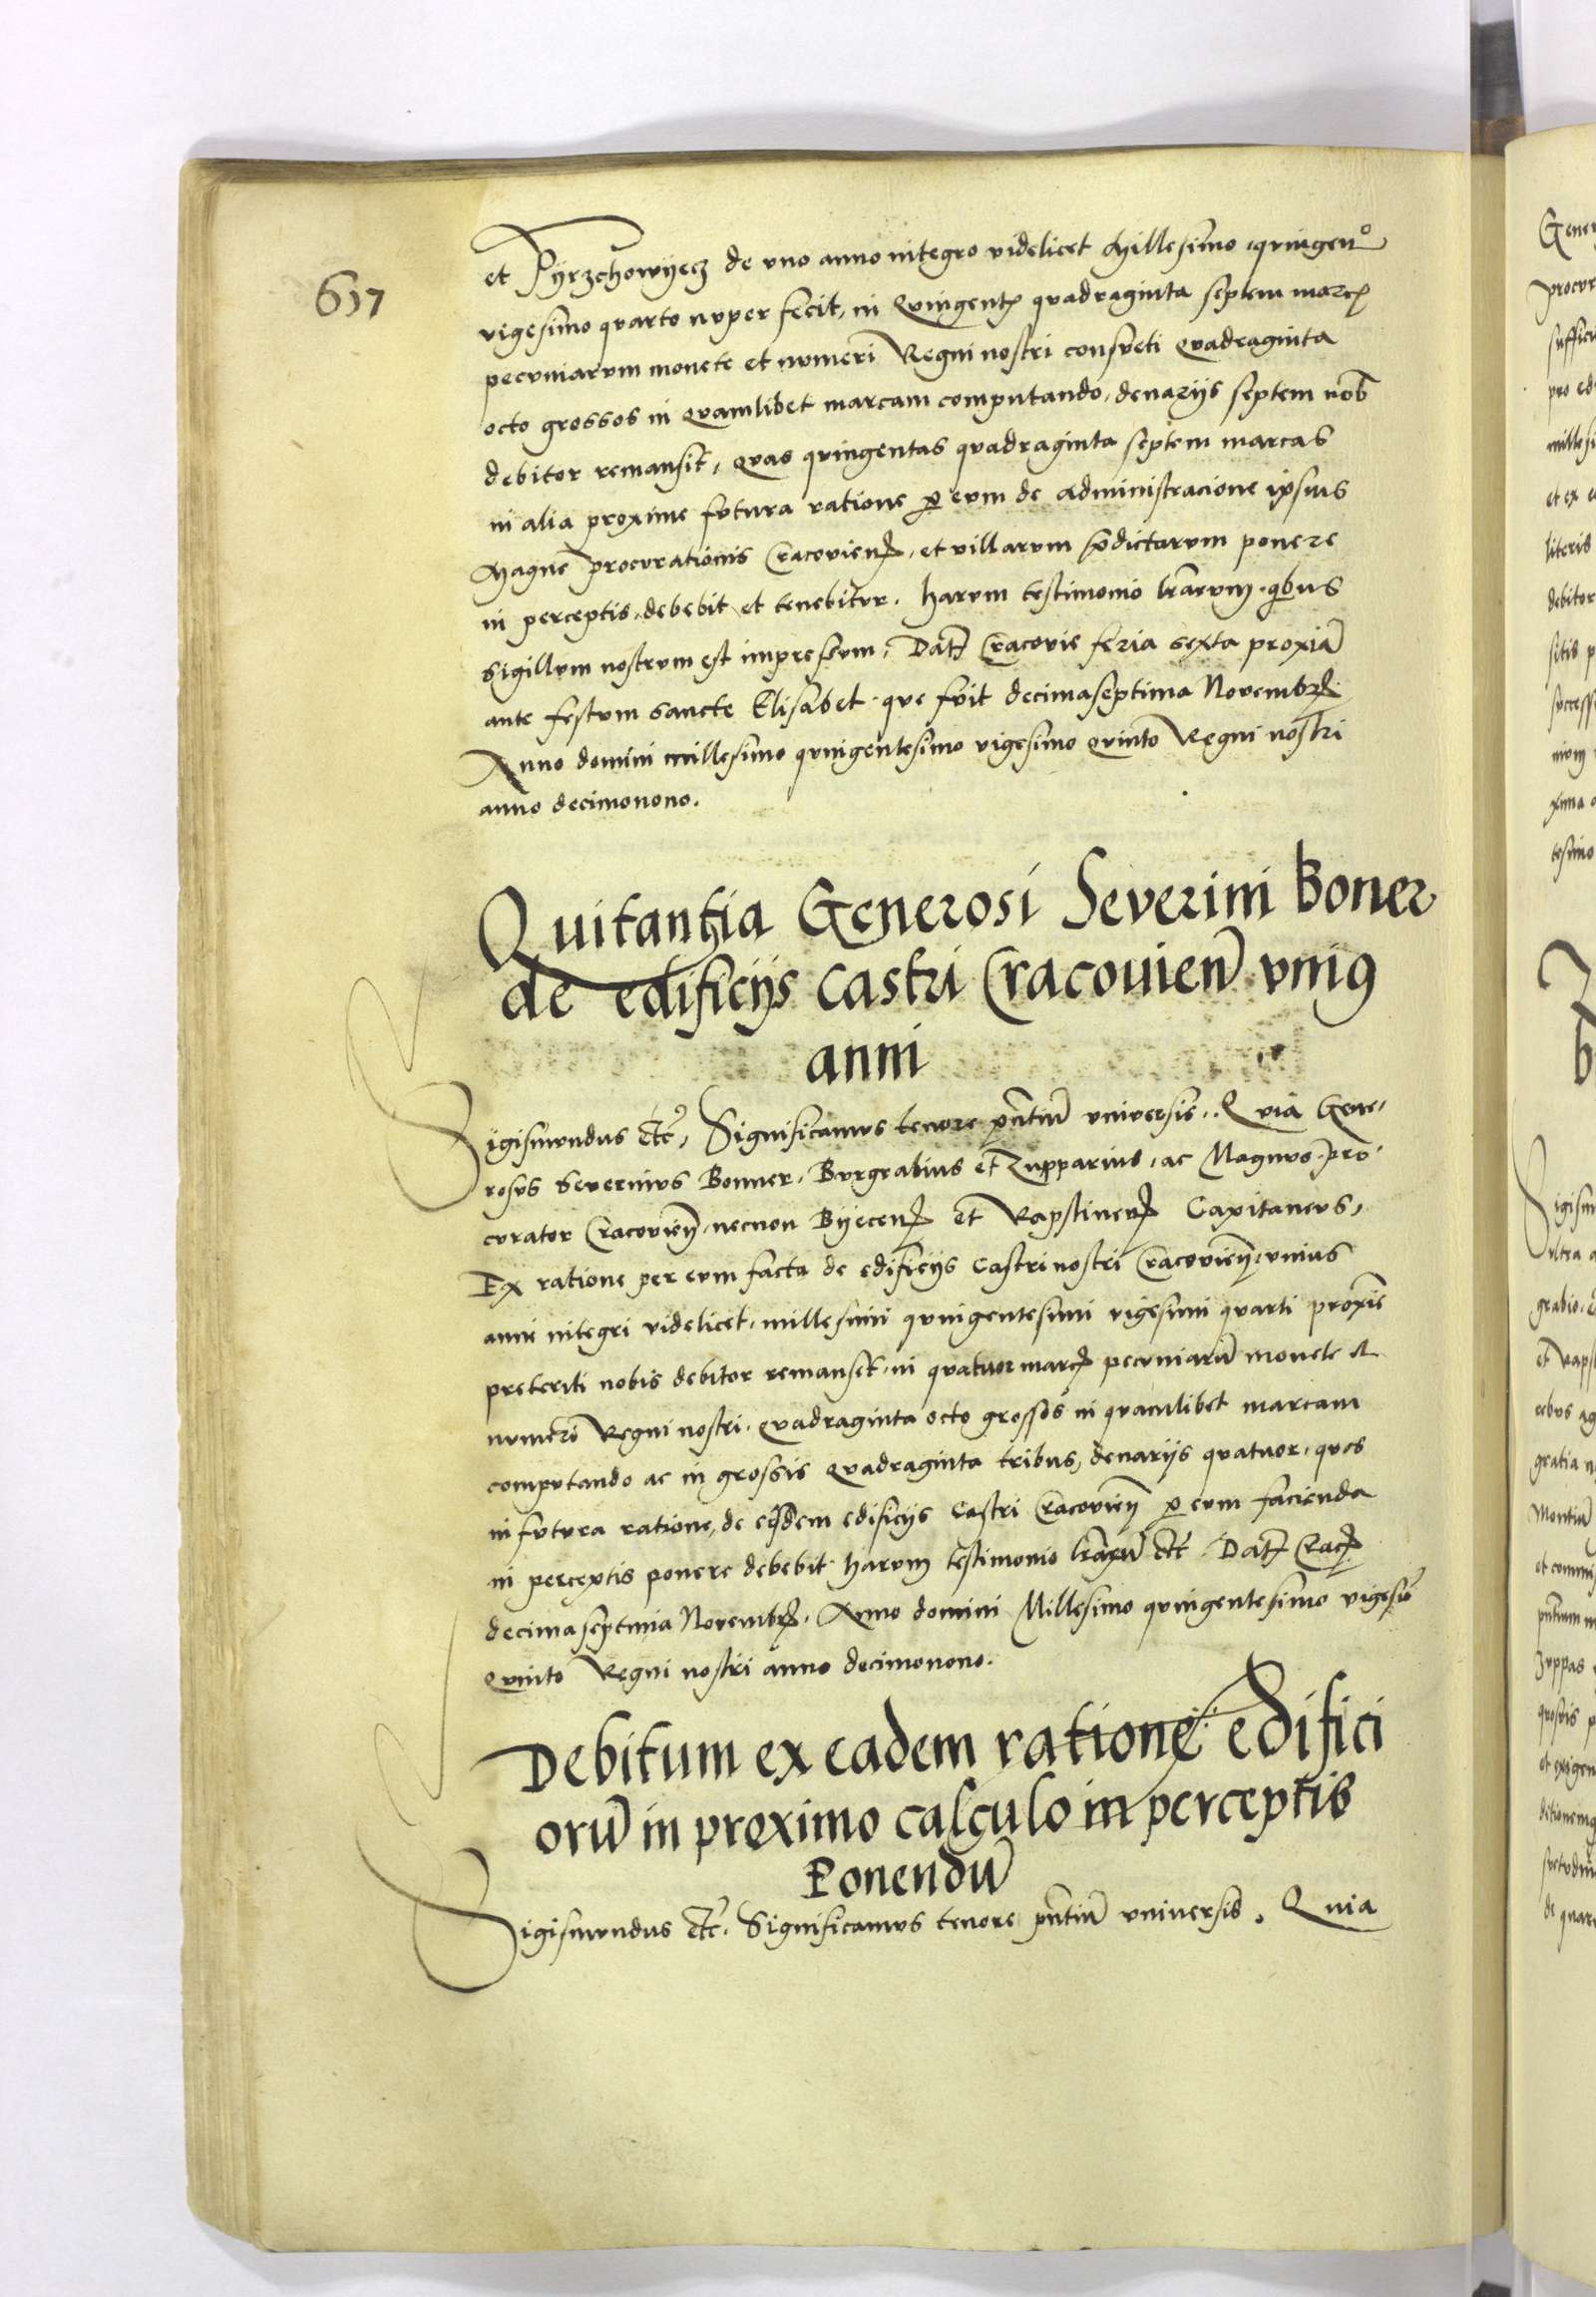 617
et Pyrzchowyecz de vno anno integro videlicet Millesimo quingenᵒ
vigesimo quarto nuper fecit, in Quingentꝭ quadraginta septem marcꝭ
pecuniarum monete et numeri Regni nostri consveti Quadraginta
octo grossos in Quamlibet marcam computando, denariis septem nob̄
debitor remansit, quas quingentas quadraginta septem marcas
in alia proxime futura ratione ꝑ eum de administracione ipsius
Magne procurationis Cracovienꝭ, et villarum p̄dictarum ponere
in perceptis debebit et tenebitur. Harum testimonio l̄rarum qꝫbus
sigillum nostrum est impressum. Datꝭ Cracovie feria sexta proxīa
ante festum sancte Elisabet que fuit decimaseptima Novembrꝭ
Anno domini millesimo quingentesimo vigesimo Quinto Regni nostri
anno decimonono.
Quitantia Generosi Severini Boner
de edificiis Castri Cracouien̄ vniꝰ
anni
Sigismundus etc̄, Significamus tenore pn̄tiū vniversis. Quia Gene,
rosus Severinus Bonner, Burgrabius et Zupparius, ac Magnus pro
curator Cracovien̄, necnon Byecenꝭ et Rapstinenꝭ Capitaneus,
Ex ratione per eum facta de edificiis Castri nostri Cracovien̄, vnius
anni integri videlicet, millesimi quingentesimi vigesimi quarti proxīe
preteriti nobis debitor remanset, in quatuor marcꝭ pecuniarū monete et
numeri Regni nostri, quadraginta octo grossos in quamlibet marcam
computando ac in grossis Quadraginta tribus, denariis quatuor, quos
in futura ratione, de eisdem edificiis Castri Cracovien̄ ꝑ eum facienda
in perceptis ponere debebit. Harum testimonio l̄rarū etc̄. Datꝭ Cracꝭ
decima septima Novembrꝭ, Anno domini Millesimo quingentesimo vigesiō
Quinto Regni nostri anno decimonono.
Debitum ex eadem ratione edifici
orū in proximo calculo in perceptis
Ponendū
Sigismundus etc̄. Significamus tenore pn̄tiū vniversis. Quia